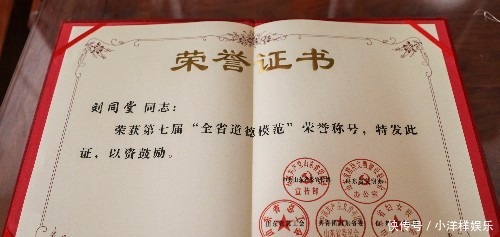 荣誉证书
刘同堂 同志：
荣获第七届“全省道德模范”荣誉称号，特发此
证，以资鼓励。
宣传部
快传号 / 小洋样娱乐